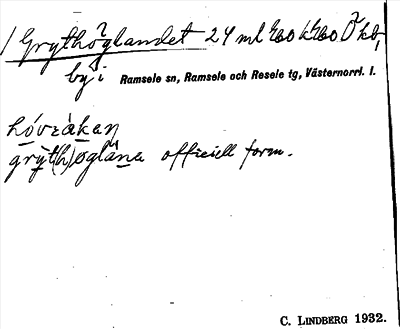 / Grythöglandet 24 ml
by i Ramsele sn, Ramsele och Resele tg, Västernorrl. l.
hóvråkan
grýt(h)ögläna officiell form.
C. LINDBERG 1932.